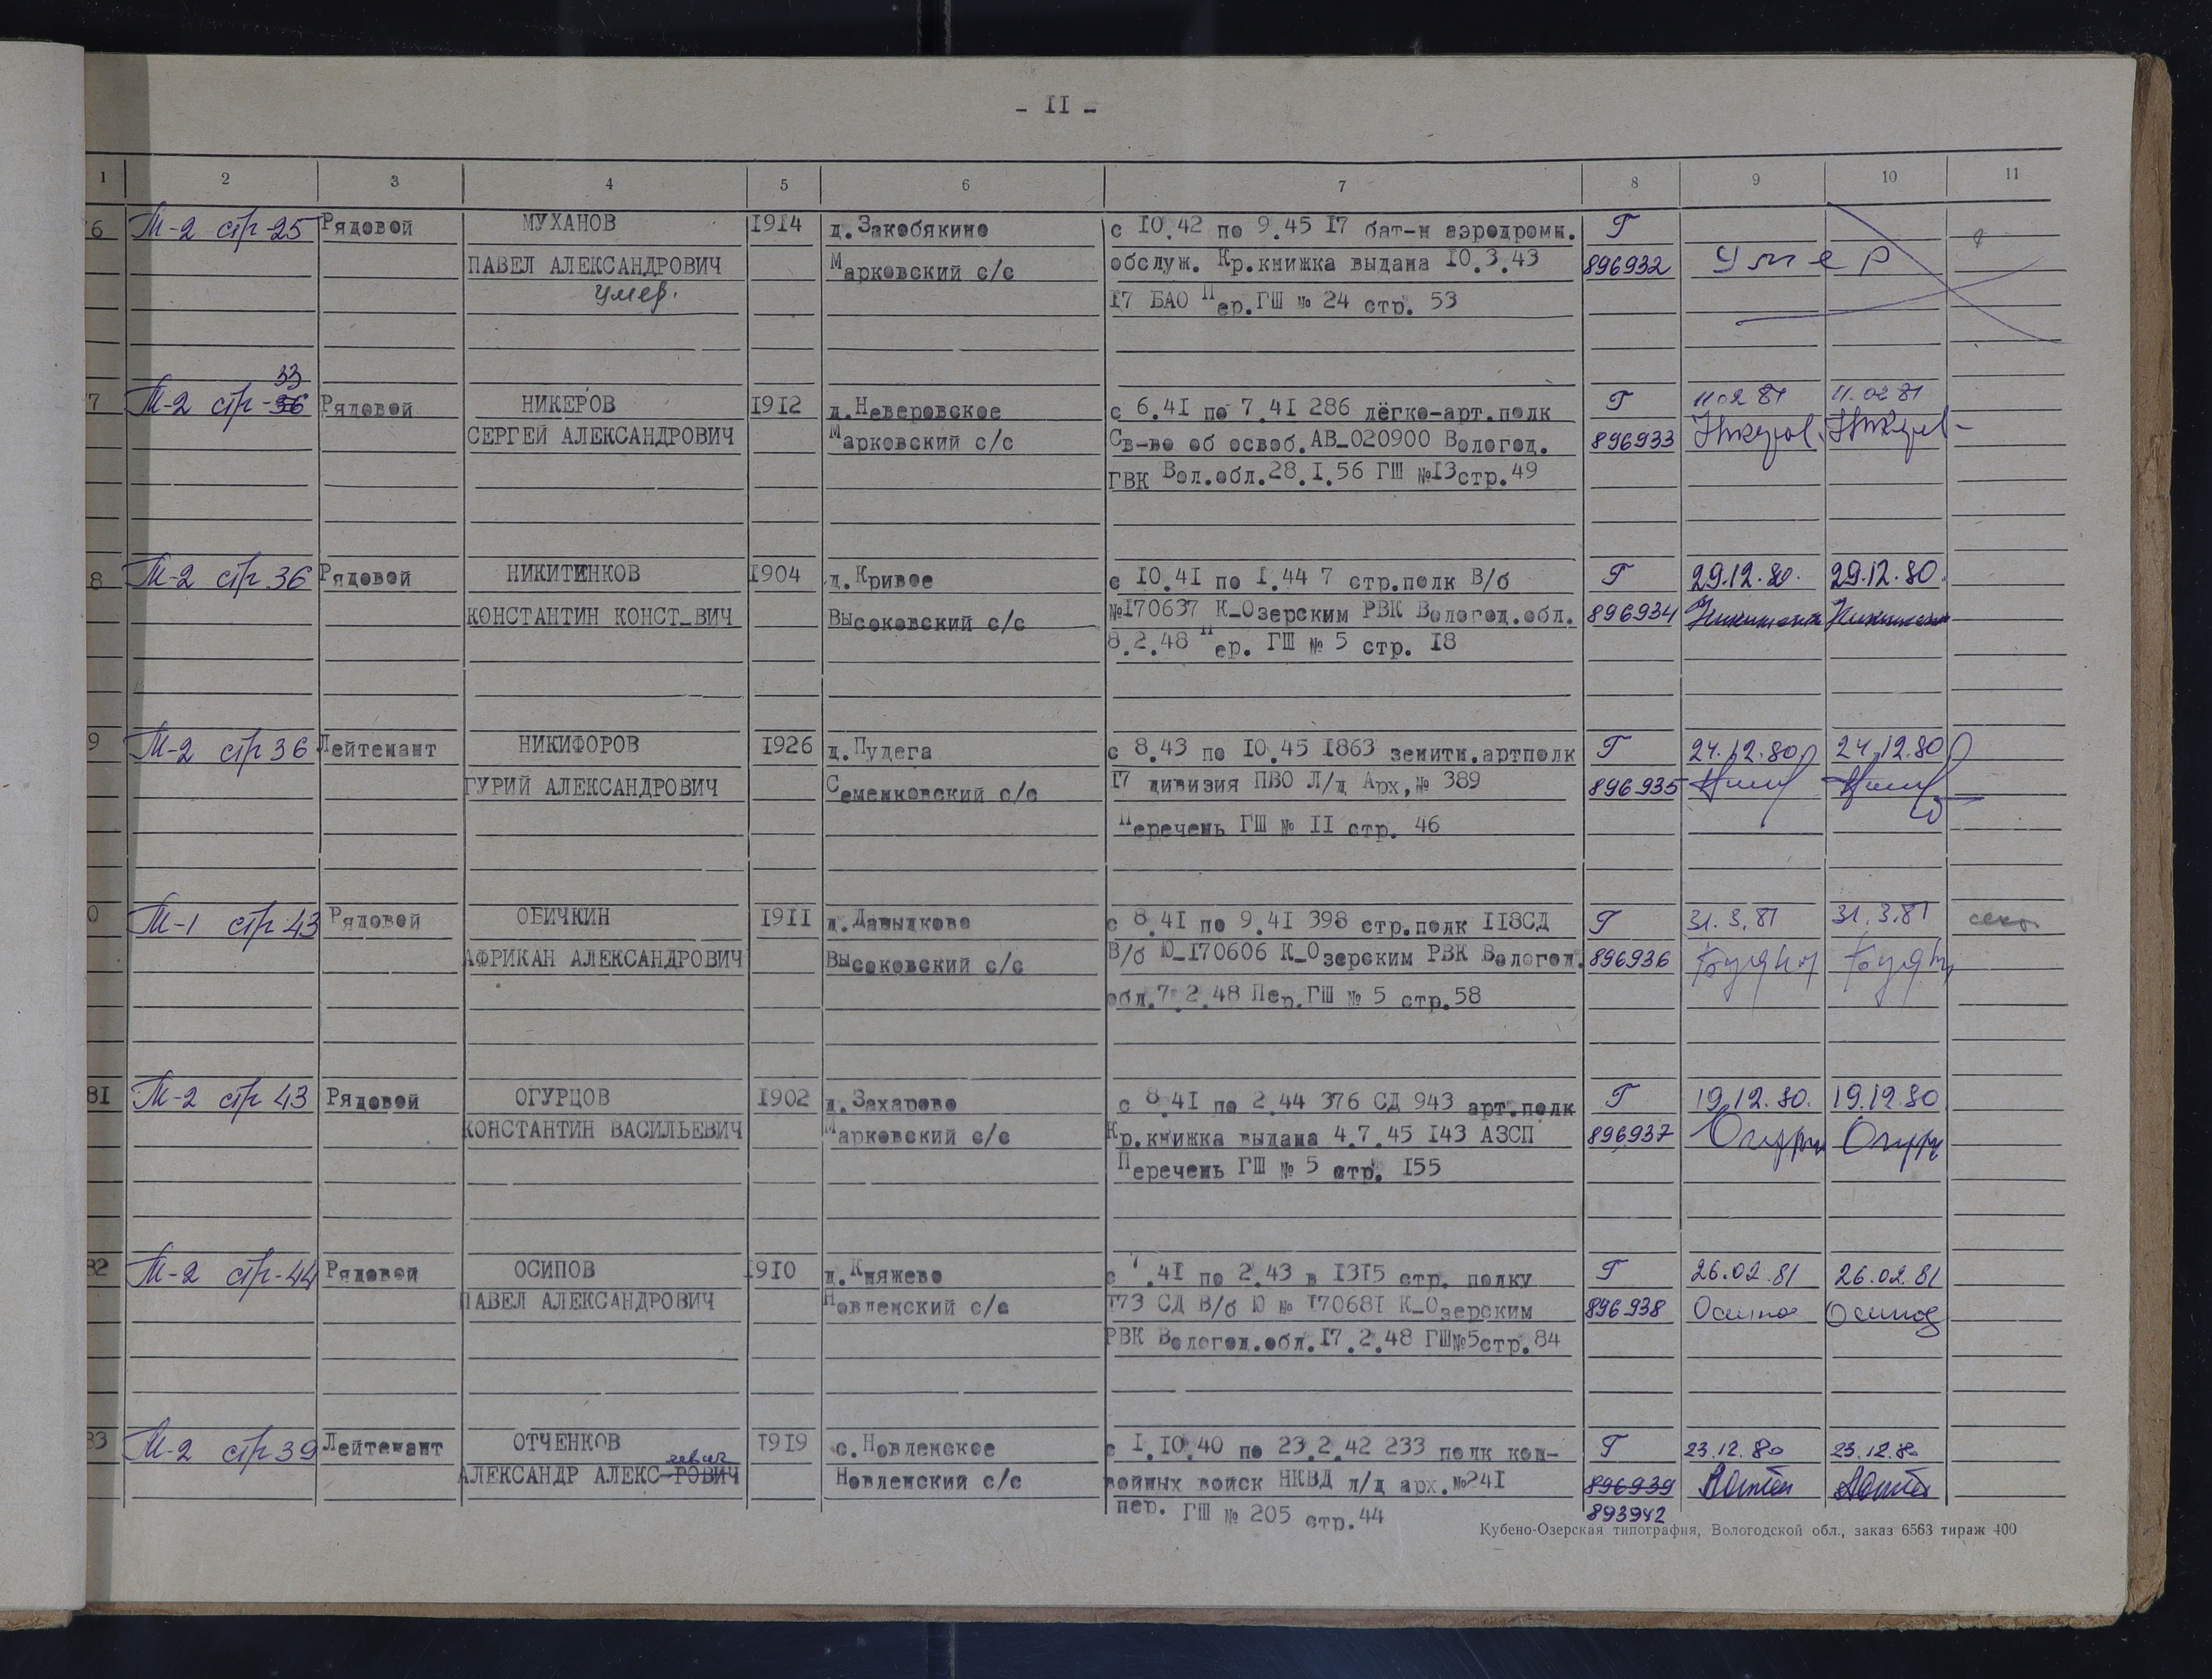 - II -
1 2 3 4 5 6 7 8 9 10 11
6 М-2 стр-25 Рядовой МУХАНОВ 1914 д.Закобякино с 10.42 по 9.45 17 бат-н аэродромн. Г
ПАВЕЛ АЛЕКСАНДРОВИЧ Марковский с/с обслуж. Кр.книжка выдана 10.3.43 896932 Умер
умер. 17 БАО Пер.ГШ № 24 стр. 53
33
7 М-2 стр-36 Рядовой НИКЕРОВ 1912 д.Неверовское с 6.41 по 7.41 286 лёгко-арт.полк Г 11 02 81 11.02 81
СЕРГЕЙ АЛЕКСАНДРОВИЧ Марковский с/с Св-во об освоб.АВ-020900 Вологод. 896933
ГВК Вол.обл.28.I.56 ГШ №13стр.49
8 М-2 стр 36 Рядовой НИКИТЕНКОВ 1904 д.Кривое с 10.41 по I.44 7 стр.полк В/б Г 29.12.80. 29.12.80.
КОНСТАНТИН КОНСТ-ВИЧ Высоковский с/с №170637 К-Озерским РВК Вологод.обл. 896934
8.2.48 Пер. ГШ № 5 стр. 18
9 М-2 стр 36 Лейтенант НИКИФОРОВ 1926 д.Пудега с 8.43 по 10.45 1863 зенитн.артполк Г 24.12.80 24.12.80
ГУРИЙ АЛЕКСАНДРОВИЧ Семенковский с/с 17 дивизия ПВО Л/д Арх,№ 389 896935
Перечень ГШ № II стр. 46
0 М-1 стр 43 Рядовой ОБИЧКИН 1911 д.Давыдково с 8.41 по 9.41 398 стр.полк 118СД Г 31.3.81 31.3.81
АФРИКАН АЛЕКСАНДРОВИЧ Высоковский с/с В/б Ю-170606 К-Озерским РВК Вологод. 896936
обл.7.2.48 Пер.ГШ № 5 стр.58
81 М-2 стр 43 Рядовой ОГУРЦОВ 1902 д.Захарово с 8.41 по 2.44 376 СД 943 арт.полк Г 19.12.80. 19.12.80
КОНСТАНТИН ВАСИЛЬЕВИЧ Марковский с/с Кр.книжка выдана 4.7.45 143 АЗСП 896937
Перечень ГШ № 5 стр. 155
82 М-2 стр-44 Рядовой ОСИПОВ 1910 д.Княжево с 7.41 по 2.43 в 1315 стр. полку Г 26.02.81 26.02.81
ПАВЕЛ АЛЕКСАНДРОВИЧ Новленский с/с 173 СД В/б Ю № 170681 К-Озерским 896938 Осипов Осипов
РВК Вологод.обл.17.2.48 ГШ№5стр.84
83 М-2 стр 39 Лейтенант ОТЧЕНКОВ 1919 с.Новленское с I.10.40 по 23.2.42 233 полк кон- Г 23.12.80 23.12.80
еевич
АЛЕКСАНДР АЛЕКС-РОВИЧ Новленский с/с войных войск НКВД л/д арх.№241 896939
пер. ГШ № 205 стр.44 893942
Кубено-Озерская типография, Вологодской обл., заказ 6563 тираж 400